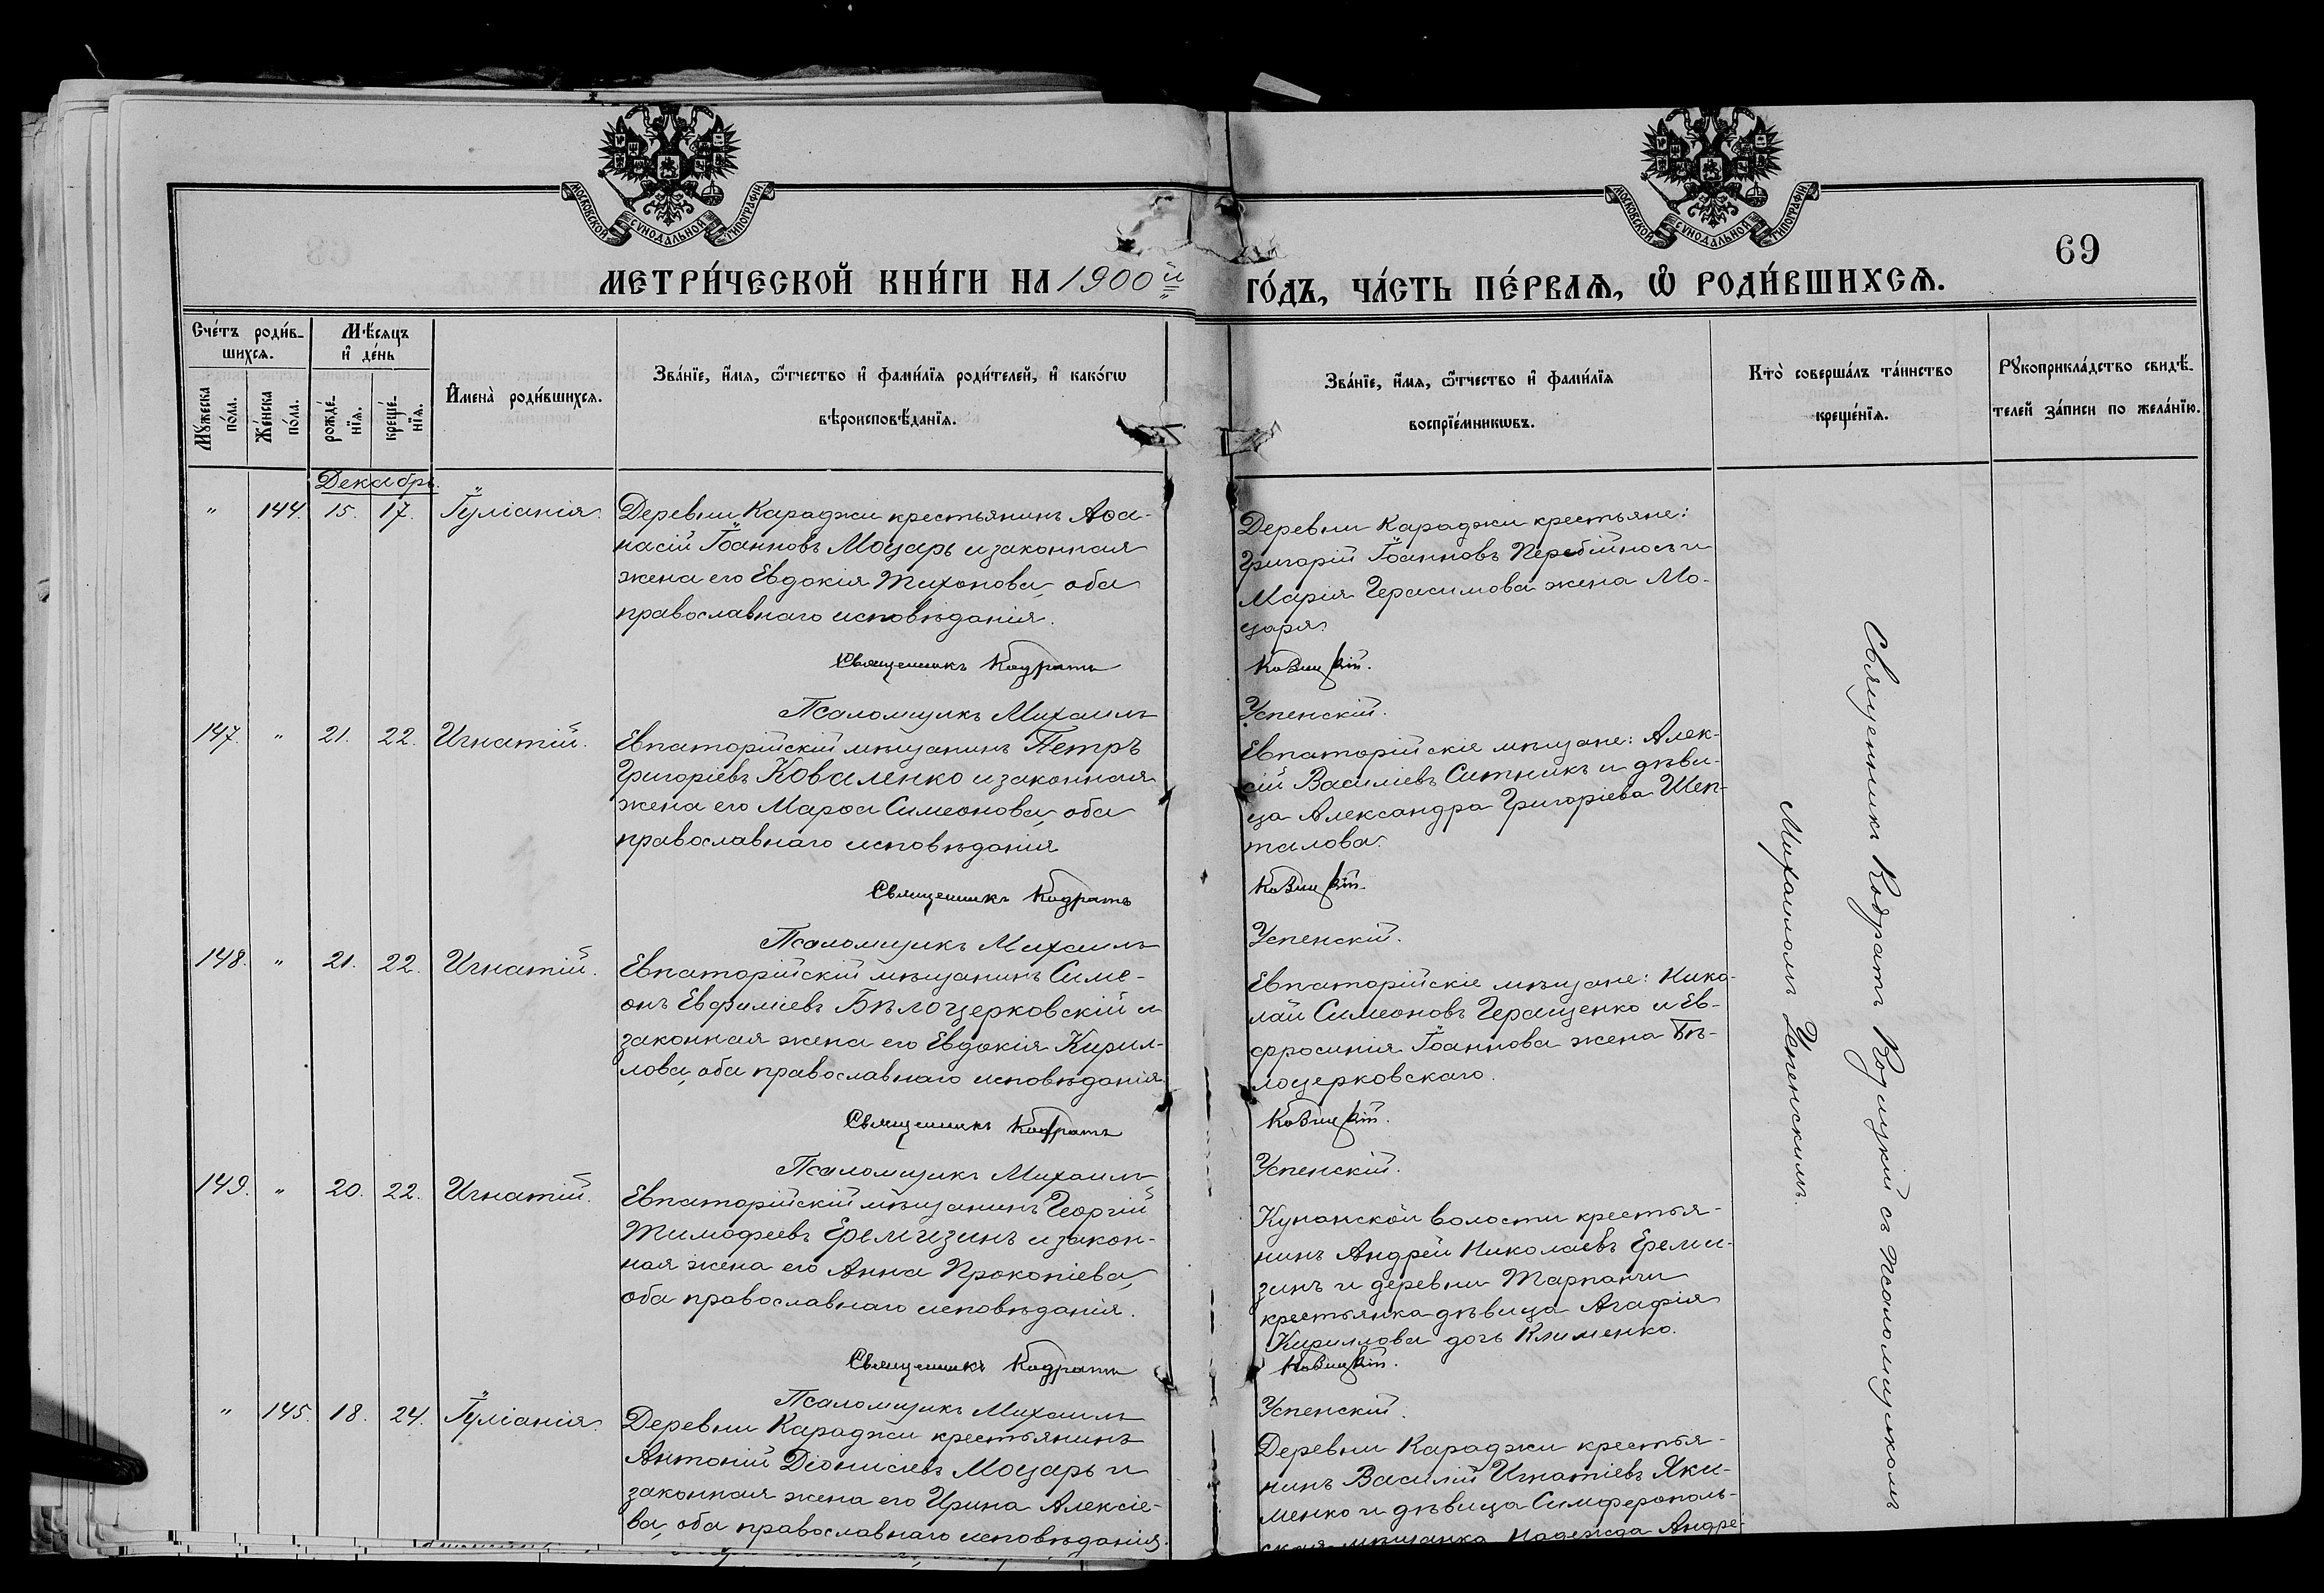 МОСКОВСКОЙ СѴНОДАЛЬНОЙ ТИПОГРАФІИ
МОСКОВСКОЙ СѴНОДАЛЬНОЙ ТИПОГРАФІИ
69
МЕТРИ́ЧЕСКОЙ КНИ́ГИ НА 1900й ГО́ДЪ, ЧА́СТЬ ПЕ́РВАѦ, Ѿ РОДИ́ВШИХСѦ.
Сче́тъ роди́в-
шихсѧ.
Мꙋ́жеска по́ла.
Же́нска по́ла.
Мѣ́сяцъ
и҆ де́нь
рожде́-нїѧ.
креще́-нїѧ.
И҆мена̀ роди́вшихсѧ.
Зва́нїе, и҆́мѧ, ѻ҆́тчество и҆ фами́лїѧ роди́телей, и҆ како́гѡ
вѣроисповѣ́данїѧ.
Зва́нїе, и҆́мѧ, ѻ҆́тчество и҆ фами́лїѧ
воспрїе́мникѡвъ.
Кто̀ соверша́лъ та́инство
креще́нїѧ.
Рꙋкоприкла́дство свидѣ́-
телей за́писи по жела́нїю.
Декабрь
" 144. 15. 17. Іуліанія.
Деревни Караджи крестьянинъ Аѳа-
насій Іоанновъ Моцарь и законная
жена его Евдокія Тихонова, оба
православнаго исповѣданія.
Священникъ Кодратъ
Псаломщикъ Михаилъ
Деревни Караджи крестьяне:
Григорій Іоанновъ Перебійносъ и
Марія Герасимова жена Мо-
царя.
Ковицкій.
Успенскій.
147. " 21. 22. Игнатій.
Евпаторійскій мѣщанинъ Петръ
Григоріевъ Коваленко и законная
жена его Марѳа Симеонова, оба
православнаго исповѣданія
Священникъ Кодратъ
Псаломщикъ Михаилъ
Евпаторійскіе мѣщане: Алек-
сій Василіевъ Ситникъ и дѣви-
ца Александра Григоріева Шеп-
талова.
Ковицкій.
Успенскій.
148. " 21. 22. Игнатій.
Евпаторійскій мѣщанинъ Симе-
онъ Евфиміевъ Бѣлоцерковскій и
законная жена его Евдокія Кирил-
лова, оба православнаго исповѣданія.
Священникъ Кодратъ
Псаломщикъ Михаилъ
Евпаторійскіе мѣщане: Нико-
лай Симеоновъ Геращенко и Ев-
фросинія Іоаннова жена Бѣ-
лоцерковскаго.
Ковицкій.
Успенскій.
149. " 20. 22. Игнатій.
Евпаторійскій мѣщанинъ Георгій
Тимофеевъ Еремизинъ и закон-
ная жена его Анна Прокопіева,
оба православнаго исповѣданія.
Священникъ Кодратъ
Псаломщикъ Михаилъ
Кунанской волости крестья-
нинъ Андрей Николаевъ Ереми-
зинъ и деревни Тарпанчи
крестьянка дѣвица Агафія
Кириллова дочь Клименко.
Ковицкій.
Успенскій.
" 145. 18. 24. Іуліанія.
Деревни Караджи крестьянинъ
Антоній Діонисіевъ Моцарь и
законная жена его Ирина Алексіе-
ва, оба православнаго исповѣданія.
Деревни Караджи крестья-
нинъ Василій Игнатіевъ Яки-
менко и дѣвица Симферополь-
ская мѣщанка Надежда Андре-
Священникъ Кодратъ Ковицкій съ Псаломщикомъ
Михаиломъ Успенскимъ.